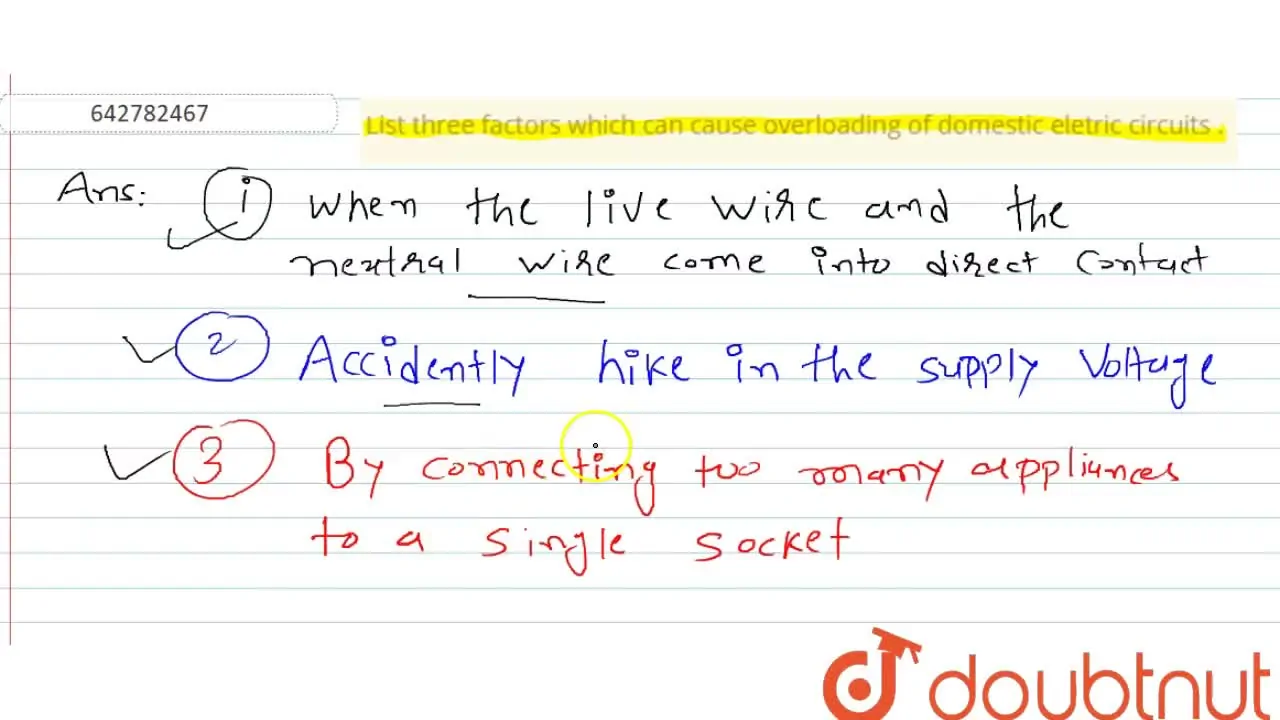 642782467
List three factors which can cause overloading of domestic eletric circuits .
Ans: i When the live wire and the
neutral wire come into direct contact
2 Accidently hike in the supply Voltage
3 By connecting too many appliances
to a single socket
doubtnut